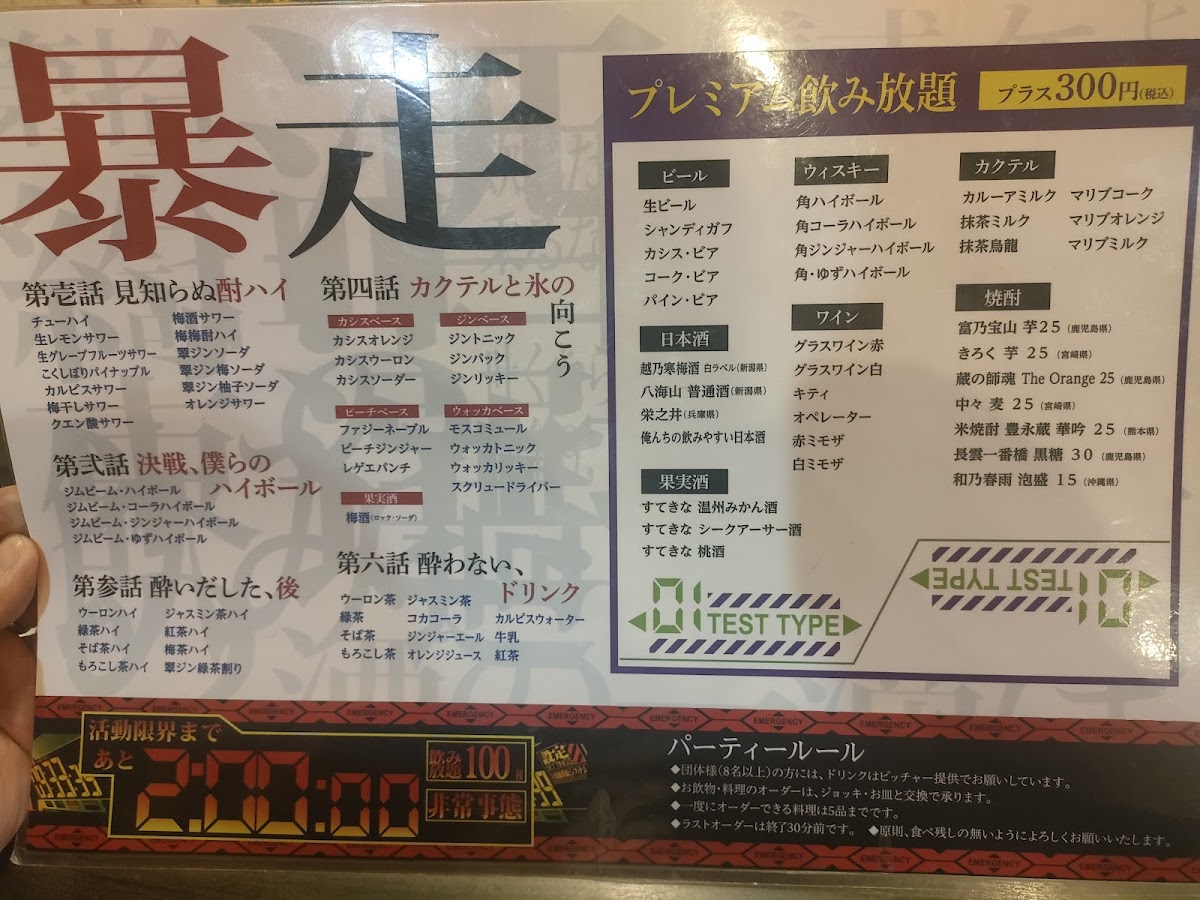 暴走
第壱話 見知らぬ酎ハイ
チューハイ
生レモンサワー
生グレープフルーツサワー
こくしぼりパイナップル
カルピスサワー
梅干しサワー
クエン酸サワー
梅酒サワー
梅梅酎ハイ
翠ジンソーダ
翠ジン梅ソーダ
翠ジン柚子ソーダ
オレンジサワー
第弐話 決戦、僕らの
ハイボール
ジムビーム・ハイボール
ジムビーム・コーラハイボール
ジムビーム・ジンジャーハイボール
ジムビーム・ゆずハイボール
第参話 酔いだした、後
ウーロンハイ
緑茶ハイ
そば茶ハイ
もろこし茶ハイ
ジャスミン茶ハイ
紅茶ハイ
梅茶ハイ
翠ジン緑茶割り
第四話 カクテルと氷の
向こう
カシスベース
カシスオレンジ
カシスウーロン
カシスソーダー
ジンベース
ジントニック
ジンバック
ジンリッキー
ピーチベース
ファジーネーブル
ピーチジンジャー
レゲエパンチ
ウォッカベース
モスコミュール
ウォッカトニック
ウォッカリッキー
スクリュードライバー
果実酒
梅酒(ロック・ソーダ)
第六話 酔わない、
ドリンク
ウーロン茶
緑茶
そば茶
もろこし茶
ジャスミン茶
コカコーラ
ジンジャーエール
オレンジジュース
カルピスウォーター
牛乳
紅茶
プレミアム飲み放題
プラス300円(税込)
ビール
生ビール
シャンディガフ
カシス・ビア
コーク・ビア
パイン・ビア
日本酒
越乃寒梅酒 白ラベル(新潟県)
八海山 普通酒(新潟県)
栄之井(兵庫県)
俺んちの飲みやすい日本酒
果実酒
すてきな 温州みかん酒
すてきな シークアーサー酒
すてきな 桃酒
ウィスキー
角ハイボール
角コーラハイボール
角ジンジャーハイボール
角・ゆずハイボール
ワイン
グラスワイン赤
グラスワイン白
キティ
オペレーター
赤ミモザ
白ミモザ
カクテル
カルーアミルク
抹茶ミルク
抹茶烏龍
マリブコーク
マリブオレンジ
マリブミルク
焼酎
富乃宝山 芋25(鹿児島県)
きろく 芋 25(宮崎県)
蔵の師魂 The Orange 25(鹿児島県)
中々 麦 25(宮崎県)
米焼酎 豊永蔵 華吟 25(熊本県)
長雲一番橋 黒糖 30(鹿児島県)
和乃春雨 泡盛 15(沖縄県)
01 TEST TYPE
01 TEST TYPE
EMERGENCY EMERGENCY EMERGENCY EMERGENCY EMERGENCY EMERGENCY EMERGENCY EMERGENCY EMERGENCY EMERGENCY EMERGENCY
活動限界まで
あと
2:00:00
飲み放題100円
非常事態
設定
パーティールール
◆団体様(8名以上)の方には、ドリンクはピッチャー提供でお願いしています。
◆お飲物・料理のオーダーは、ジョッキ・お皿と交換で承ります。
◆一度にオーダーできる料理は5品までです。
◆ラストオーダーは終了30分前です。 ◆原則、食べ残しの無いようによろしくお願いいたします。